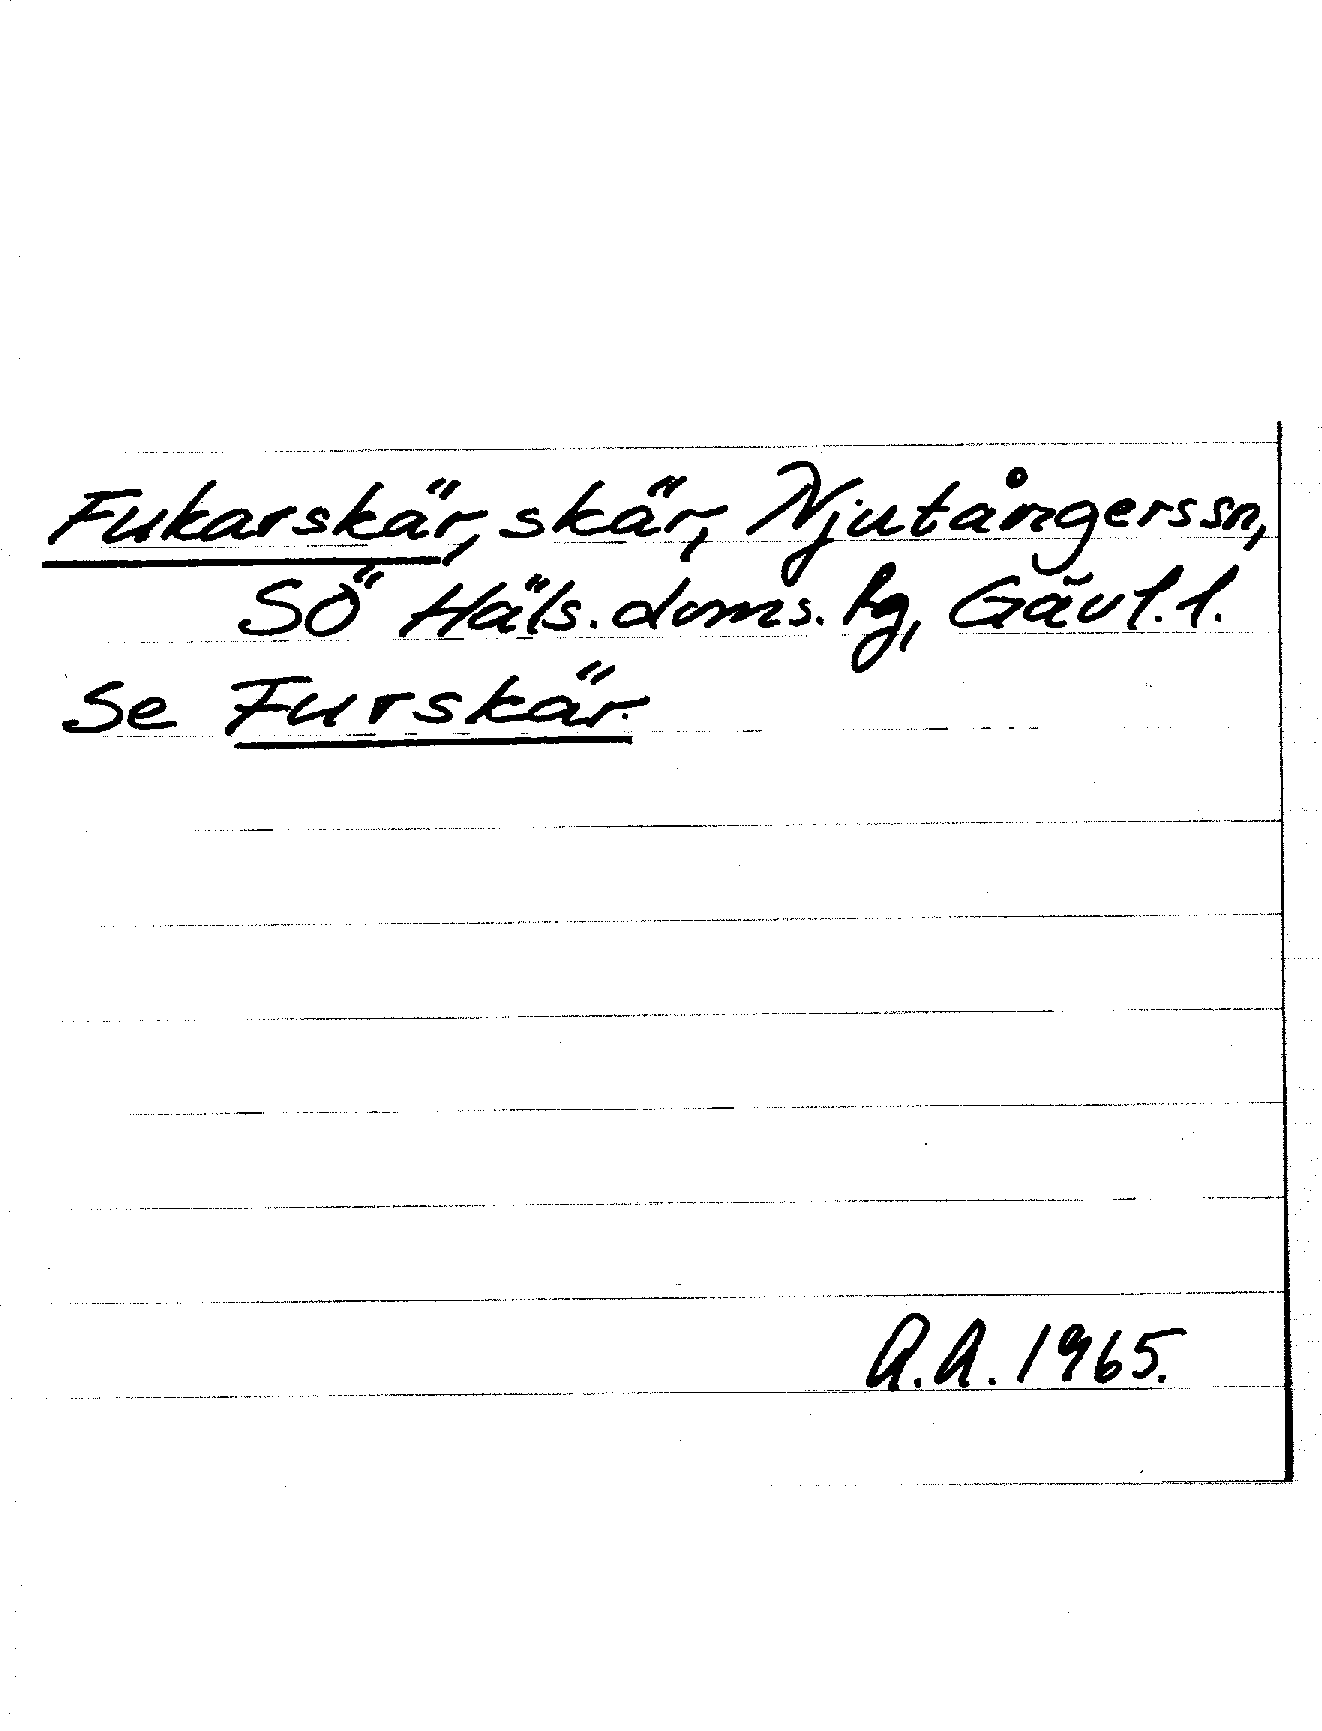 Fukarskär, skär, Njutångers sn,
SÖ Häls. doms. fg, Gävl. l.
Se Furskär.
A.A. 1965.